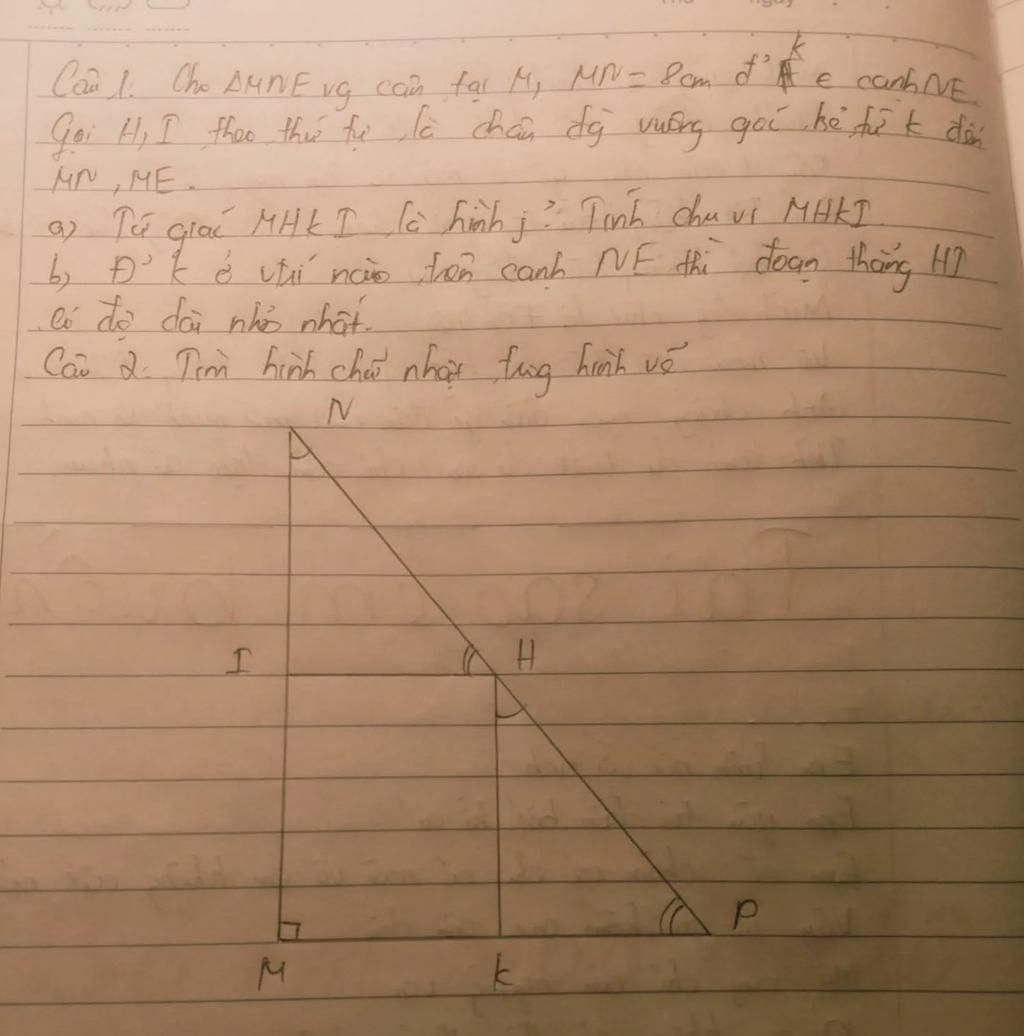 Câu 1. Cho ΔMNE vg cân tại M, MN = 8cm đ' k ∈ cạnh NE.
Gọi H, I theo thứ tự là chân đg vuông goí kẻ từ k đến
MN, ME.
a) Tứ giác MHkI là hình j? Tính chu vi MHkI.
b) Đ' k ở vtrí nào trên cạnh NE thì đoạn thẳng HI
có độ dài nhỏ nhất.
Câu 2. Tìm hình chữ nhật trg hình vẽ
N
I H
P
M k